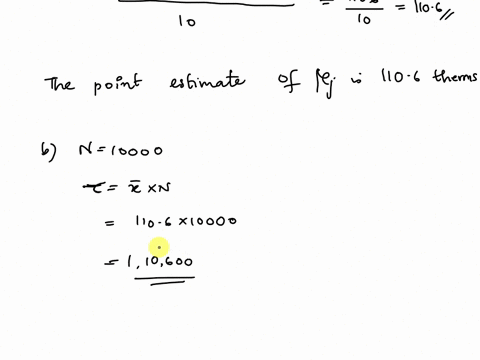 = 110.6
10 = 10 = 110.6
The point estimate of μj is 110.6 therms
b) N = 10000
τ = x̄ × N
= 110.6 × 10000
= 1,10,600